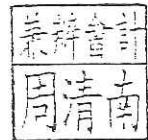 兼辦會計
周清南